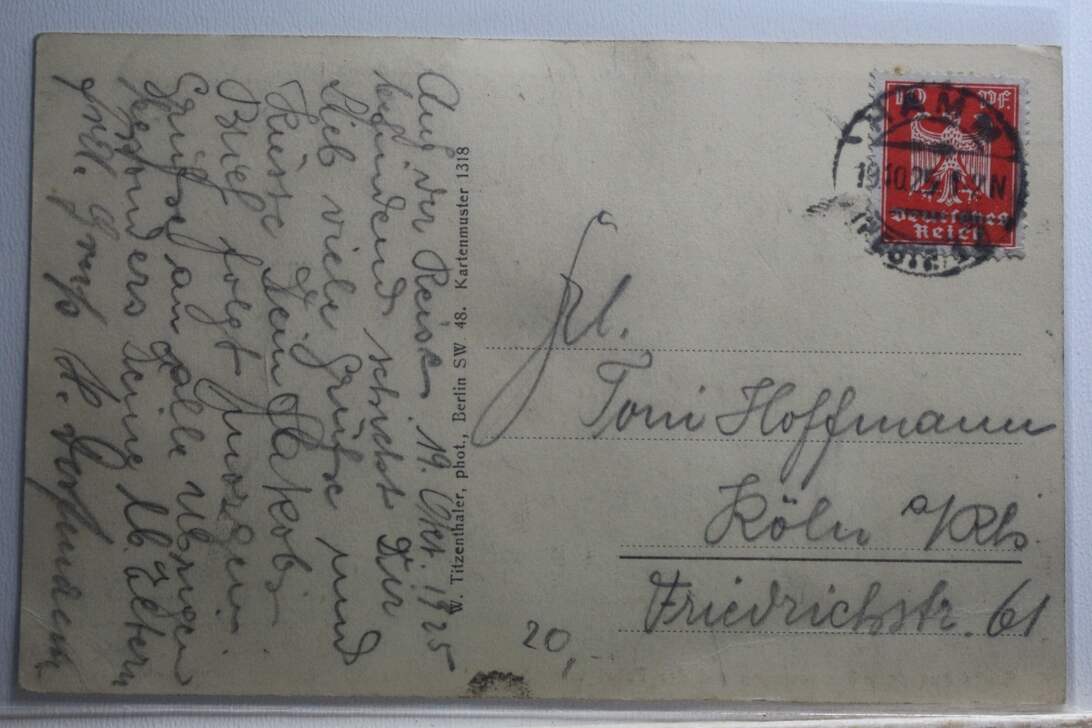 Auf der Reise 19. Okt. 1925
befindend schickt Dir
lieb viele Grüße und
Küsse Dein Jakob.
Brief folgt
Grüße an alle übrigen
besonders Deine lb. Eltern
Gruß H.
W. Titzenthaler, phot., Berlin SW 48. Kartenmuster 1318
10 Pf.
HAMM
19.10.25. 1-2N
Deutsches
Reich
Frl.
Toni Hoffmann
Köln a/Rh.
Friedrichstr. 61
20,